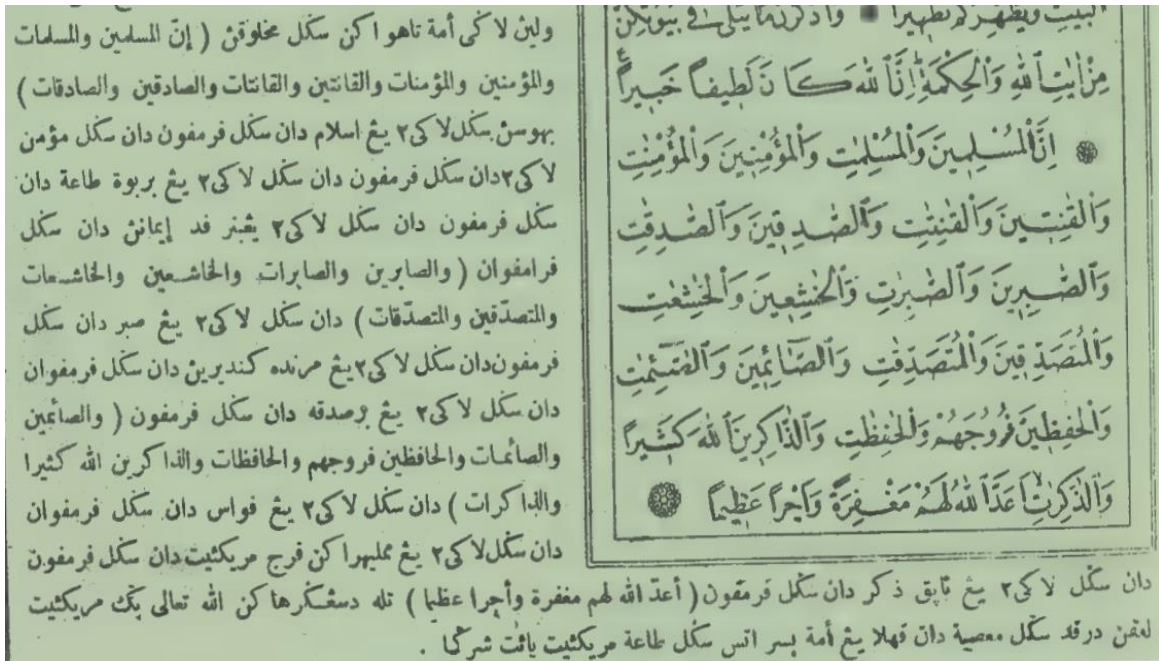 البيت ويطهركم تطهيرا واذكرن ما يتلى في بيوتكن
مِنْ اٰيٰتِ اللّٰهِ وَالْحِكْمَةِ اِنَّ اللّٰهَ كَانَ لَطِيفاً خَبِيراً
اِنَّ الْمُسْلِمِينَ وَالْمُسْلِمٰتِ وَالْمُؤْمِنِينَ وَالْمُؤْمِنٰتِ
وَالْقٰنِتِينَ وَالْقٰنِتٰتِ وَالصّٰدِقِينَ وَالصّٰدِقٰتِ
وَالصّٰبِرِينَ وَالصّٰبِرٰتِ وَالْخٰشِعِينَ وَالْخٰشِعٰتِ
وَالْمُتَصَدِّقِينَ وَالْمُتَصَدِّقٰتِ وَالصَّائِمِينَ وَالصّٰئِمٰتِ
وَالْحٰفِظِينَ فُرُوجَهُمْ وَالْحٰفِظٰتِ وَالذَّاكِرِينَ اللّٰهَ كَثِيراً
وَالذّٰكِرٰتِ اَعَدَّ اللّٰهُ لَهُمْ مَغْفِرَةً وَاَجْراً عَظِيماً
ولين لاكى أمة تاهوا كن سكل مخلوقن ( إنّ المسلمين والمسلمات
والمؤمنين والمؤمنات والقانتين والقانتات والصادقين والصادقات )
بهوسن سكل لاكى٢ يڠ اسلام دان سكل فرمفون دان سكل مؤمن
لاكى٢ دان سكل فرمفون دان سكل لاكى٢ يڠ بربوة طاعة دان
سكل فرمفون دان سكل لاكى٢ يڠبنر فد إيمانڽ دان سكل
فرامفوان ( والصابرين والصابرات والخاشعين والخاشعات
والمتصدّقين والمتصدّقات ) دان سكل لاكى٢ يڠ صبر دان سكل
فرمفون دان سكل لاكى٢ يڠ مرنده كنديرين دان سكل فرمفوان
دان سكل لاكى٢ يڠ برصدقه دان سكل فرمفون ( والصائمين
والصائمات والحافظين فروجهم والحافظات والذاكرين الله كثيرا
والذاكرات ) دان سكل لاكى٢ يڠ فواس دان سكل فرمفوان
دان سكل لاكى٢ يڠ ممليهرا كن فرج مريكئيت دان سكل فرمفون
دان سكل لاكى٢ يڠ باڽق ذكر دان سكل فرمفون ( أعدّ الله لهم مغفرة وأجرا عظيما ) تله دسڠكرها كن الله تعالى بݢ مريكئيت
امفن درفد سكل معصية دان فهلا يڠ أمة بسر اتس سكل طاعة مريكئيت يائت شرݢا .